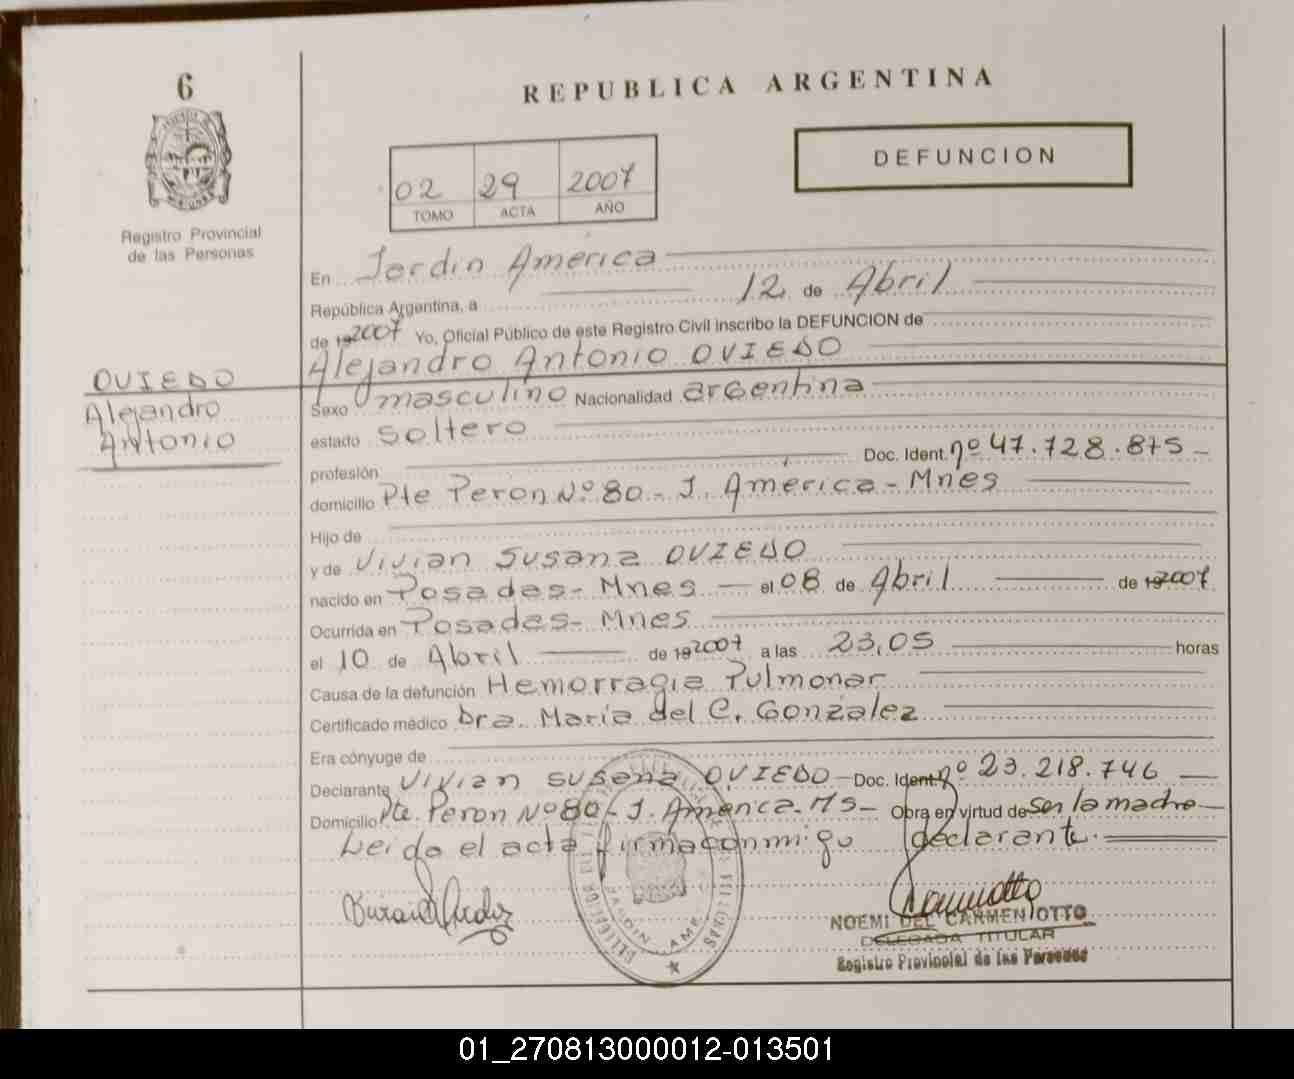 6
REPUBLICA ARGENTINA
Registro Provincial
de las Personas
02 29 2007
TOMO ACTA AÑO
DEFUNCION
En Jardin América
República Argentina, a 12 de Abril
de 192007 Yo, Oficial Público de este Registro Civil inscribo la DEFUNCION de
Alejandro Antonio OVIEDO
OVIEDO
Alejandro
Antonio
Sexo masculino Nacionalidad argentina
estado soltero
profesión Doc. Ident. nº 47.728.875
domicilio Pte Peron Nº 80 - J. América - Mnes
Hijo de
y de Vivian Susana OVIEDO
nacido en Posadas - Mnes el 08 de Abril de 192007
Ocurrida en Posadas - Mnes
el 10 de Abril de 192007 a las 23,05 horas
Causa de la defunción Hemorragia Pulmonar
Certificado médico Dra. María del C. González
Era cónyuge de
Declarante Vivian Susana OVIEDO Doc. Ident. nº 23.218.746
Domicilio Pte. Peron Nº 80 - J. América - MS - Obra en virtud de ser la madre
Leida el acta firma conmigo declarante.
JARDIN AME
NOEMI DEL CARMEN OTTO
DELEGADA TITULAR
Registro Provincial de las Personas
01_270813000012-013501